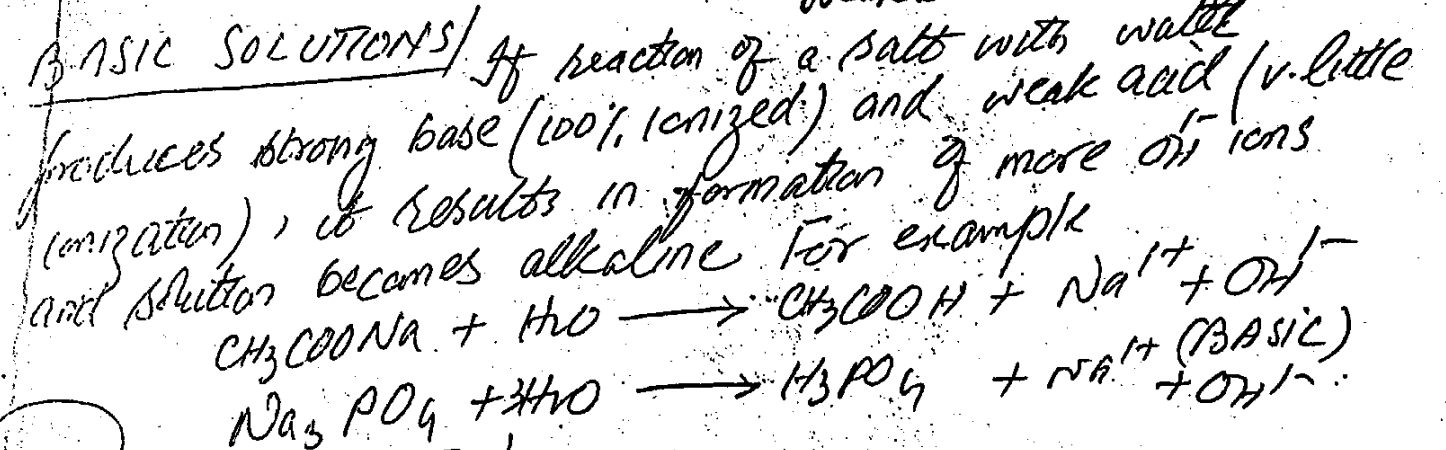 BASIC SOLUTIONS/ If reaction of a salt with water
produces strong base (100% ionized) and weak acid (v. little
ionization), it results in formation of more OH¹⁻ ions
and solution becomes alkaline For example
CH₃COONa + H₂O ⟶ CH₃COOH + Na¹⁺ + OH¹⁻
(BASIC)
Na₃PO₄ + 3H₂O ⟶ H₃PO₄ + Na¹⁺ + OH¹⁻